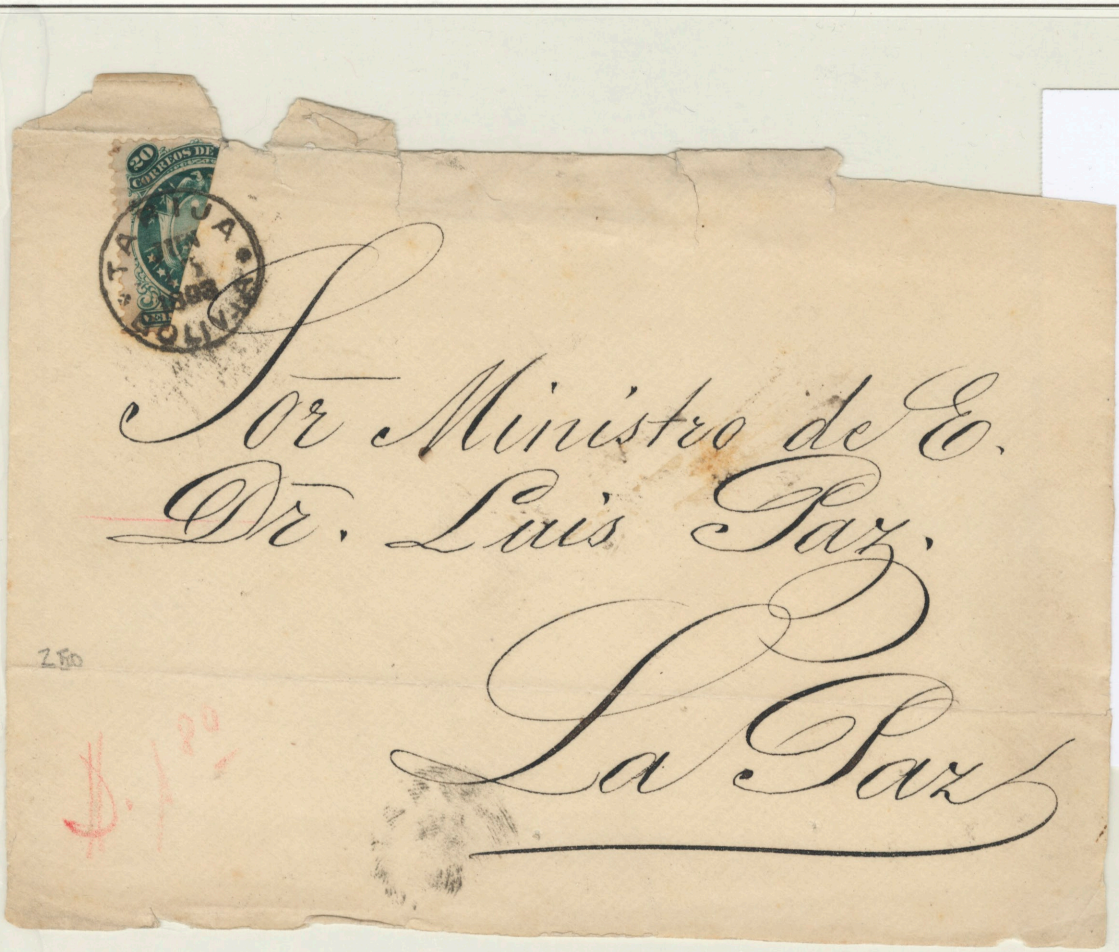 20
CORREOS DE
TARIJA
JUN
1893
BOLIVIA
Sōr Ministro de E.
Dr̄. Luis Paz.
La Paz
$. 1 80